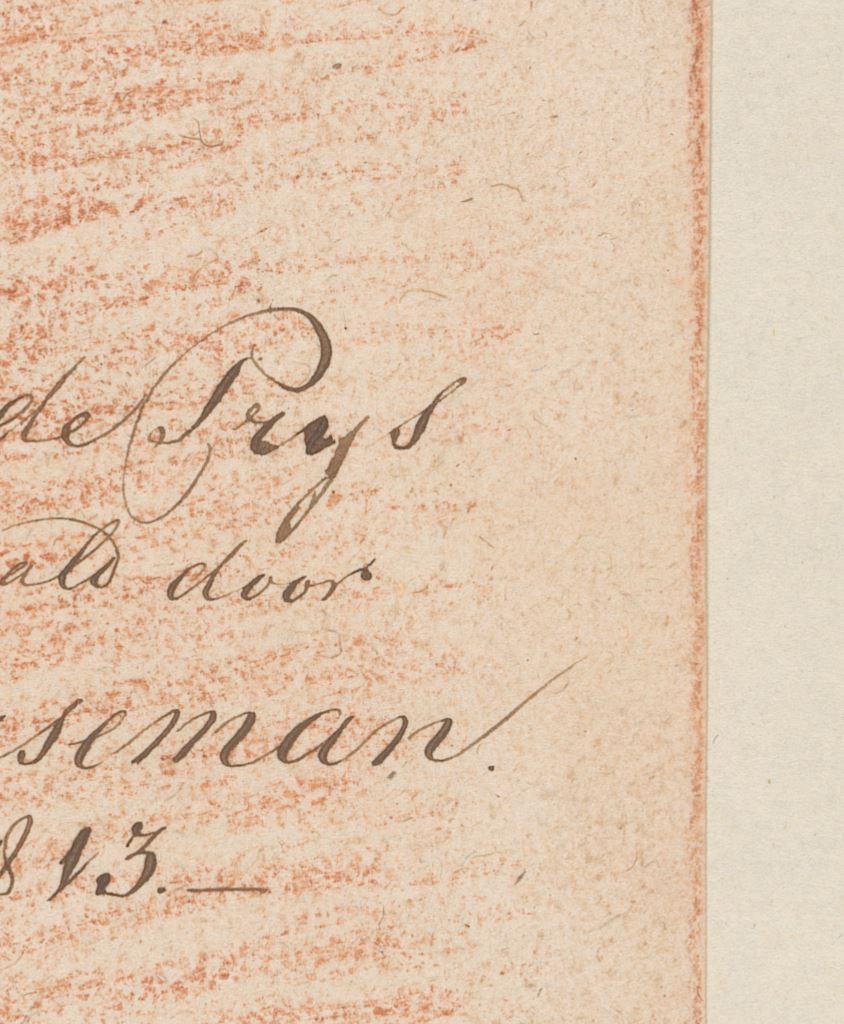 de Prys
ald door
seman.
813.—